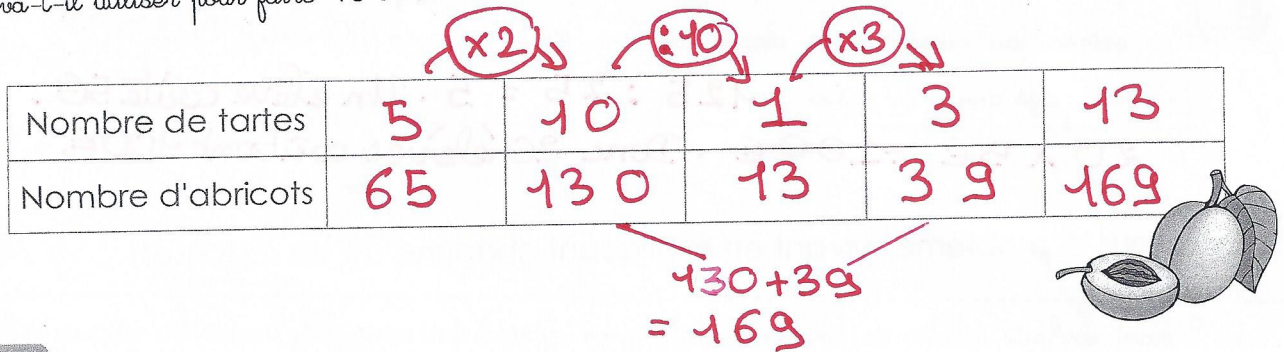 va-t-il utiliser pour faire
×2 :10 ×3
Nombre de tartes 5 10 1 3 13
Nombre d'abricots 65 130 13 39 169
130+39
= 169